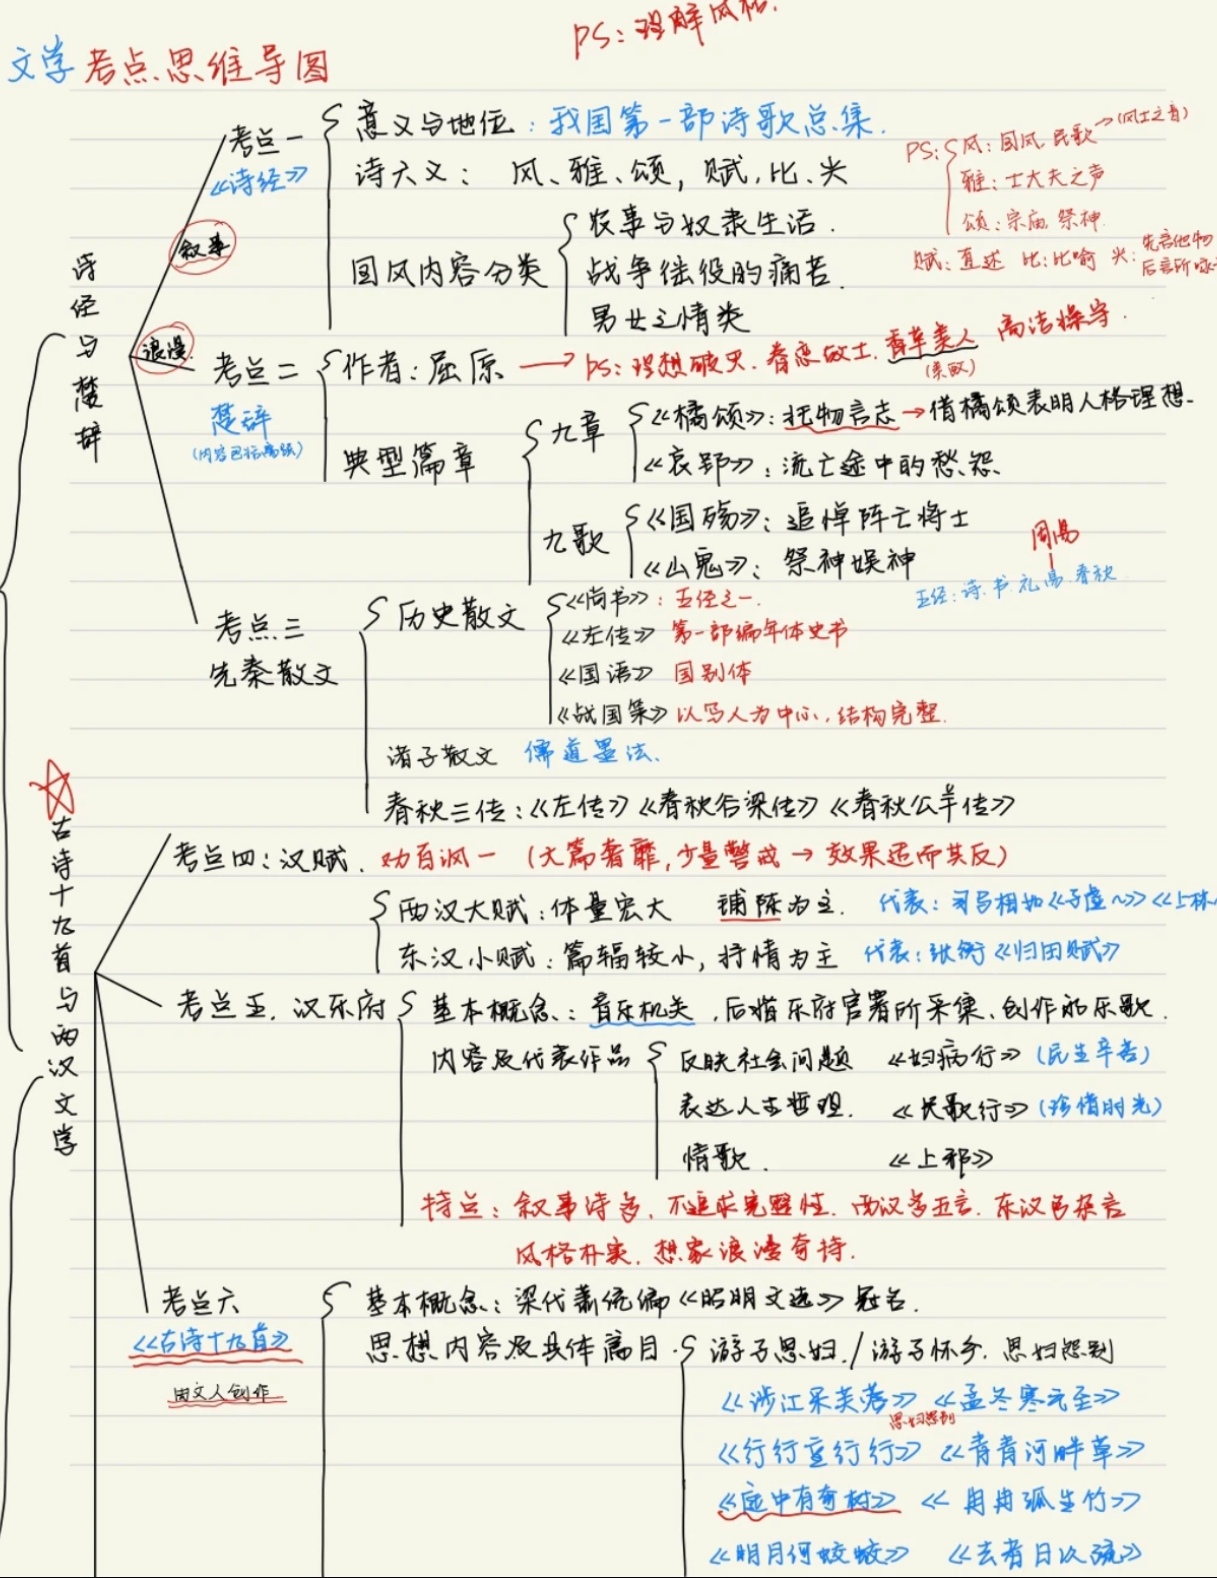 PS：理解风格.
文学考点思维导图
诗经与楚辞
叙事
浪漫
考点一
《诗经》
意义与地位：我国第一部诗歌总集.
诗六义：风、雅、颂，赋，比、兴
PS：风：国风.民歌→(风土之音)
雅：士大夫之声
颂：宗庙祭神
赋：直述 比：比喻 兴：先言他物
后言所咏
国风内容分类
农事与奴隶生活.
战争徭役的痛苦.
男女之情类
考点二
楚辞
作者：屈原→PS：理想破灭.眷恋故土.香草美人 高洁操守.
典型篇章
九章
《橘颂》：托物言志→借橘颂表明人格理想.
《哀郢》：流亡途中的愁怨
九歌
《国殇》：追悼阵亡将士
《山鬼》：祭神娱神
周易
五经：诗.书.礼.易.春秋
考点三
先秦散文
历史散文
《尚书》：五经之一.
《左传》第一部编年体史书
《国语》国别体
《战国策》以写人为中心，结构完整.
诸子散文 儒道墨法.
春秋三传：《左传》《春秋谷梁传》《春秋公羊传》
古诗十九首与两汉文学
考点四：汉赋.劝百讽一（大篇奢靡，少量警戒→效果适而其反）
西汉大赋：体量宏大 铺陈为主.代表：司马相如《子虚~》《上林
东汉小赋：篇辐较小，抒情为主 代表：张衡《归田赋》
考点五.汉乐府
基本概念：音乐机关，后指乐府官署所采集、创作的乐歌.
内容及代表作品
反映社会问题 《妇病行》(民生辛苦)
表达人生哲理.《长歌行》(珍惜时光)
情歌.《上邪》
特点：叙事诗多.不追求完整性.西汉多五言.东汉多杂言
风格朴实.想象浪漫奇特.
考点六
《古诗十九首》
由文人创作
基本概念：梁代萧统编《昭明文选》冠名.
思想内容及具体篇目.
游子思妇./游子怀乡.思妇怨别
《涉江采芙蓉》《孟冬寒气至》
思妇怨别
《行行重行行》《青青河畔草》
《庭中有奇树》《冉冉孤生竹》
《明月何皎皎》《去者日以疏》